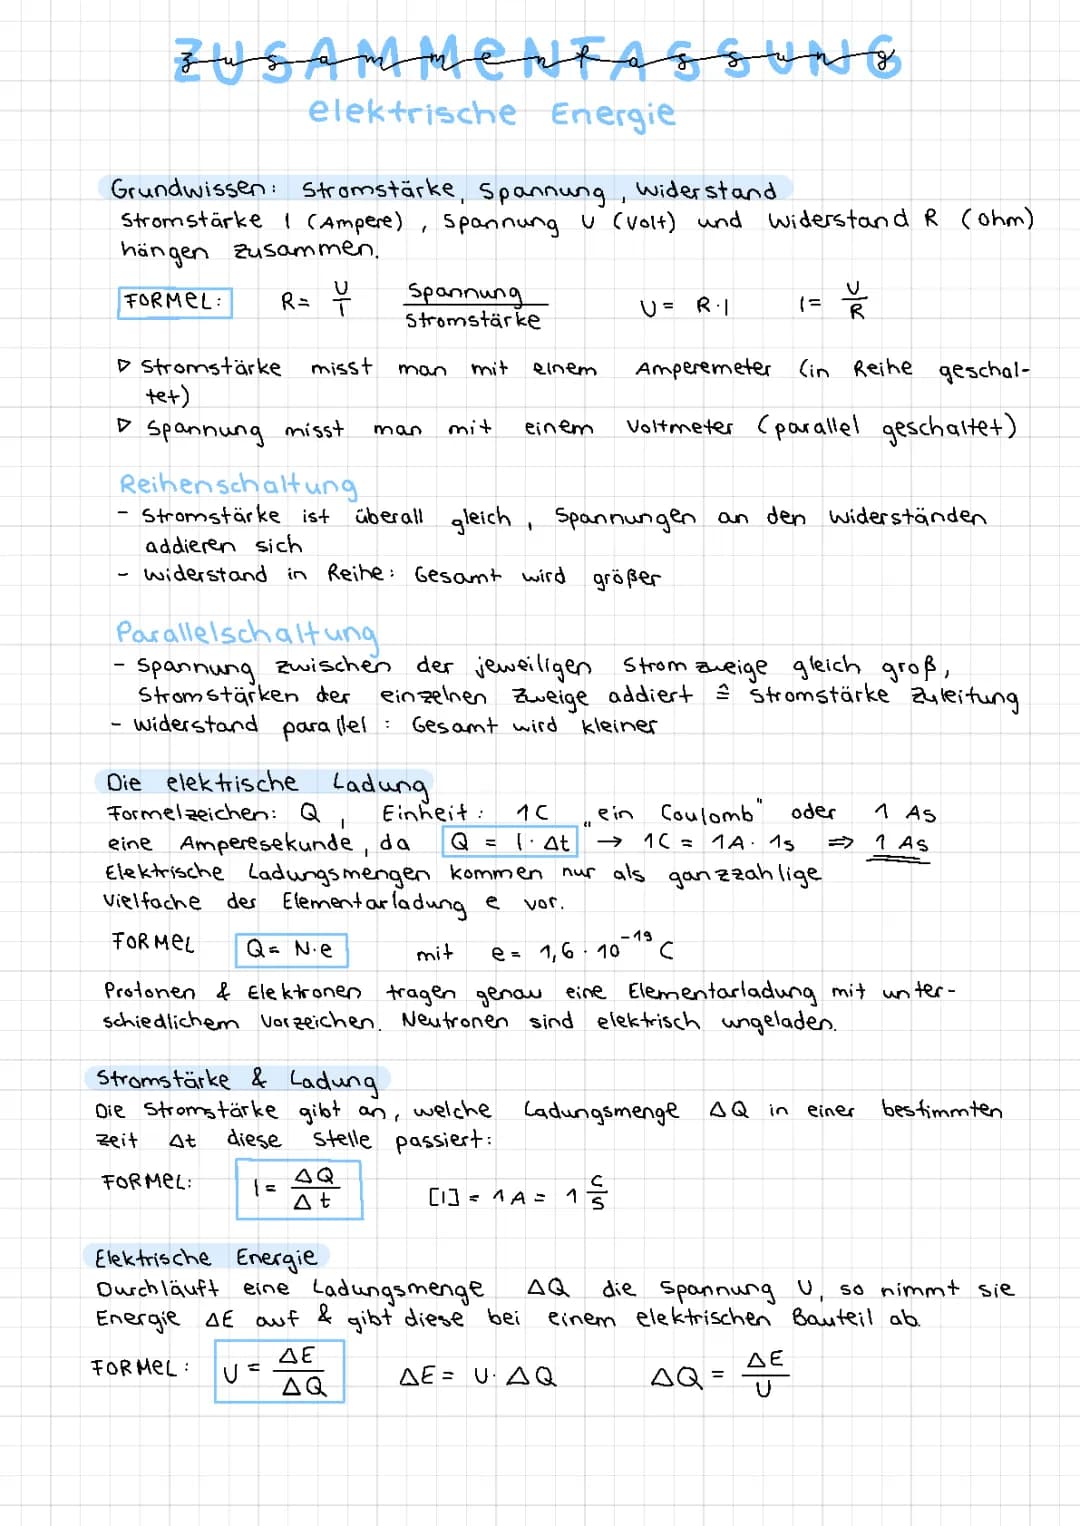 ZUSAMMENFASSUNG
zusammenfassung
elektrische Energie
Grundwissen: Stromstärke, Spannung, Widerstand
Stromstärke I (Ampere), Spannung U (Volt) und Widerstand R (Ohm)
hängen zusammen.
FORMEL: R = U/I Spannung/Stromstärke U = R·I I = U/R
▷ Stromstärke misst man mit einem Amperemeter (in Reihe geschal-
tet)
▷ Spannung misst man mit einem Voltmeter (parallel geschaltet)
Reihenschaltung
- Stromstärke ist überall gleich, Spannungen an den Widerständen
addieren sich
- Widerstand in Reihe: Gesamt wird größer
Parallelschaltung
- Spannung zwischen der jeweiligen Stromzweige gleich groß,
Stromstärken der einzelnen Zweige addiert ≙ Stromstärke Zuleitung
- Widerstand parallel: Gesamt wird kleiner
Die elektrische Ladung
Formelzeichen: Q, Einheit: 1C „ein Coulomb" oder 1 As
eine Amperesekunde, da Q = I·Δt → 1C = 1A·1s ⇒ 1 As
Elektrische Ladungsmengen kommen nur als ganzzahlige
Vielfache der Elementarladung e vor.
FORMEL Q = N·e mit e = 1,6·10⁻¹⁹ C
Protonen & Elektronen tragen genau eine Elementarladung mit unter-
schiedlichem Vorzeichen. Neutronen sind elektrisch ungeladen.
Stromstärke & Ladung
Die Stromstärke gibt an, welche Ladungsmenge ΔQ in einer bestimmten
Zeit Δt diese Stelle passiert:
FORMEL: I = ΔQ/Δt [I] = 1A = 1 C/s
Elektrische Energie
Durchläuft eine Ladungsmenge ΔQ die Spannung U, so nimmt sie
Energie ΔE auf & gibt diese bei einem elektrischen Bauteil ab.
FORMEL: U = ΔE/ΔQ ΔE = U·ΔQ ΔQ = ΔE/U